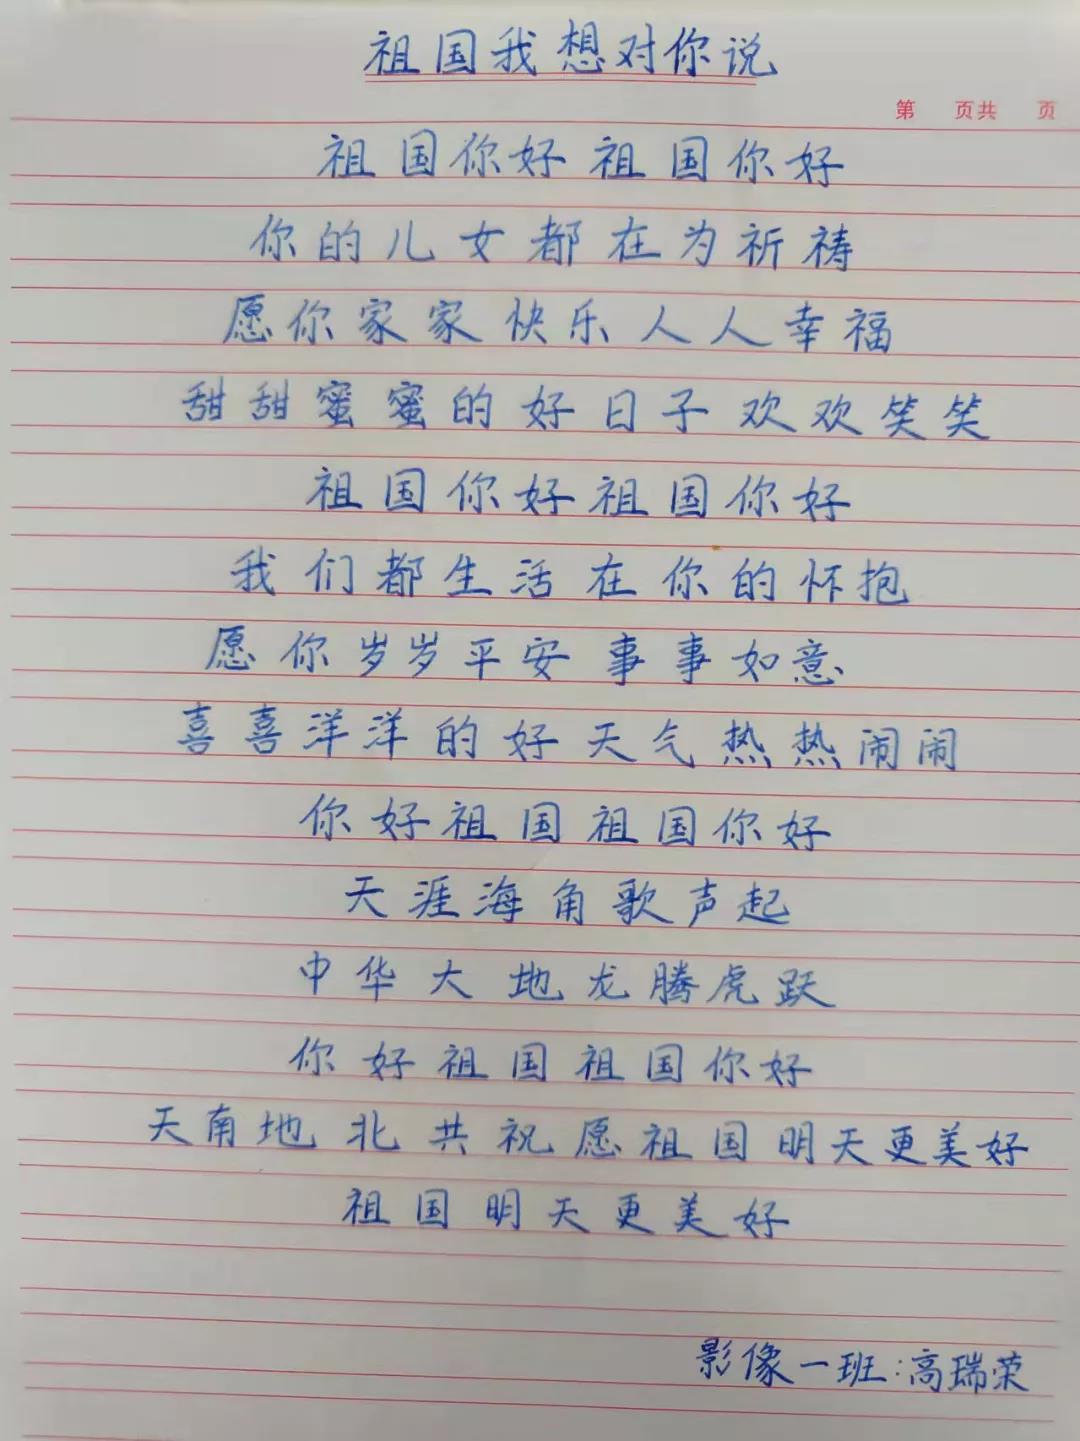 祖国我想对你说
第 页共 页
祖国你好 祖国你好
你的儿女都在为祈祷
愿你家家快乐人人幸福
甜甜蜜蜜的好日子欢欢笑笑
祖国你好祖国你好
我们都生活在你的怀抱
愿你岁岁平安事事如意
喜喜洋洋的好天气热热闹闹
你好祖国祖国你好
天涯海角歌声起
中华大地龙腾虎跃
你好祖国祖国你好
天南地北共祝愿祖国明天更美好
祖国明天更美好
影像一班:高瑞荣